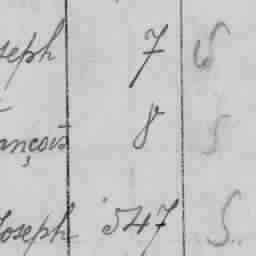 seph 7 S
ançois 8 S
Joseph 547 S.